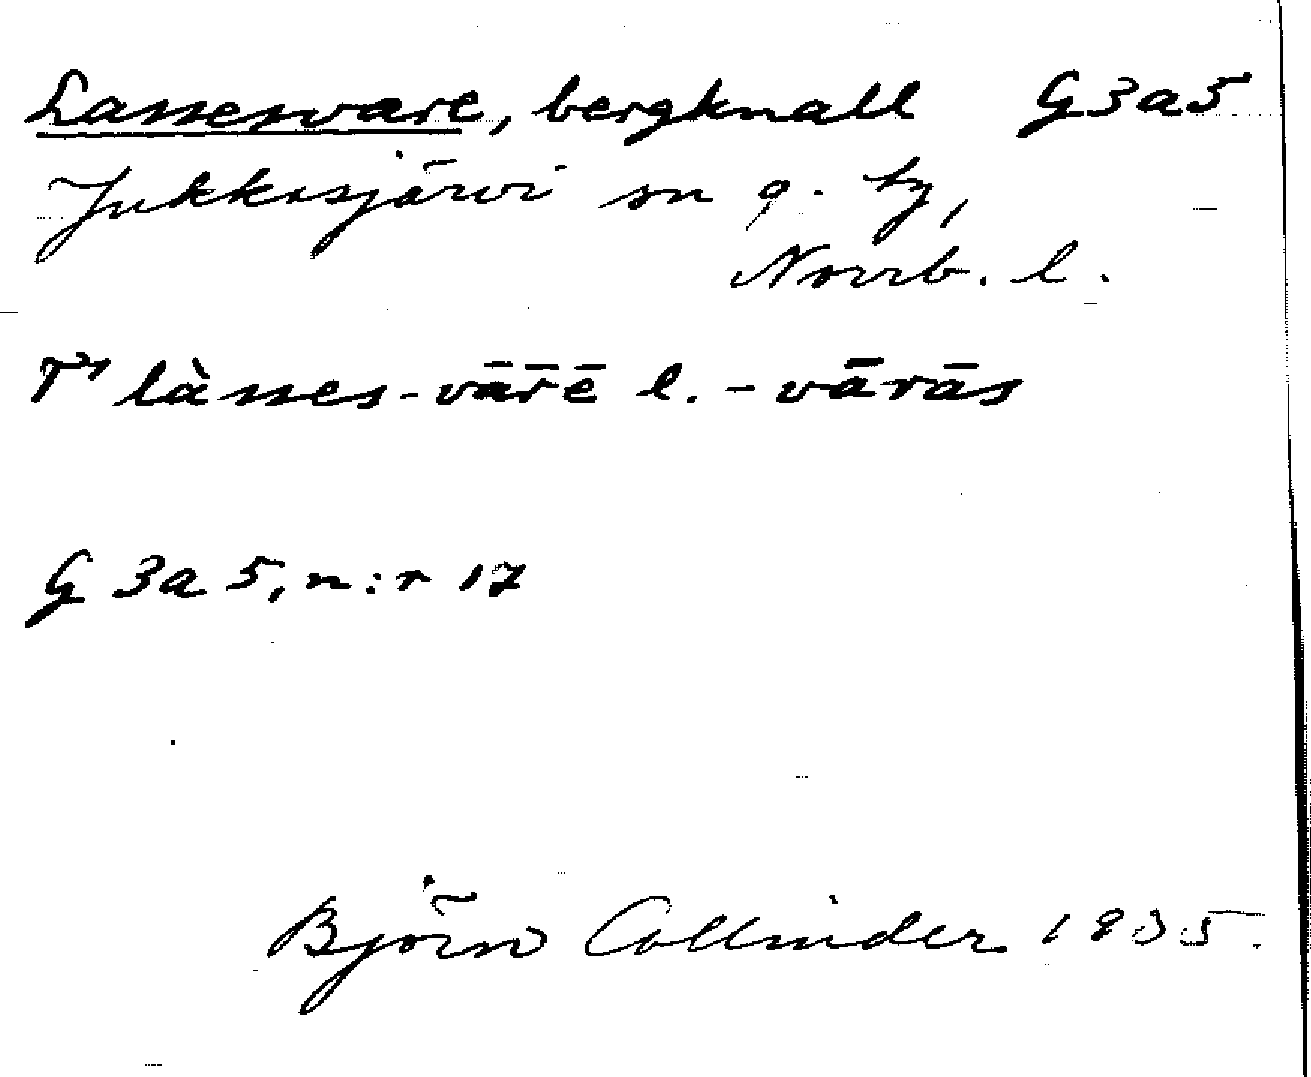 Lassesvare, bergknall G3a5
Jukkasjärvi sn g. ty,
Norrb. l.
T¹ làsses-vārē l. -vārās
G 3a 5, n:r 17
Björn Collinder 1935.